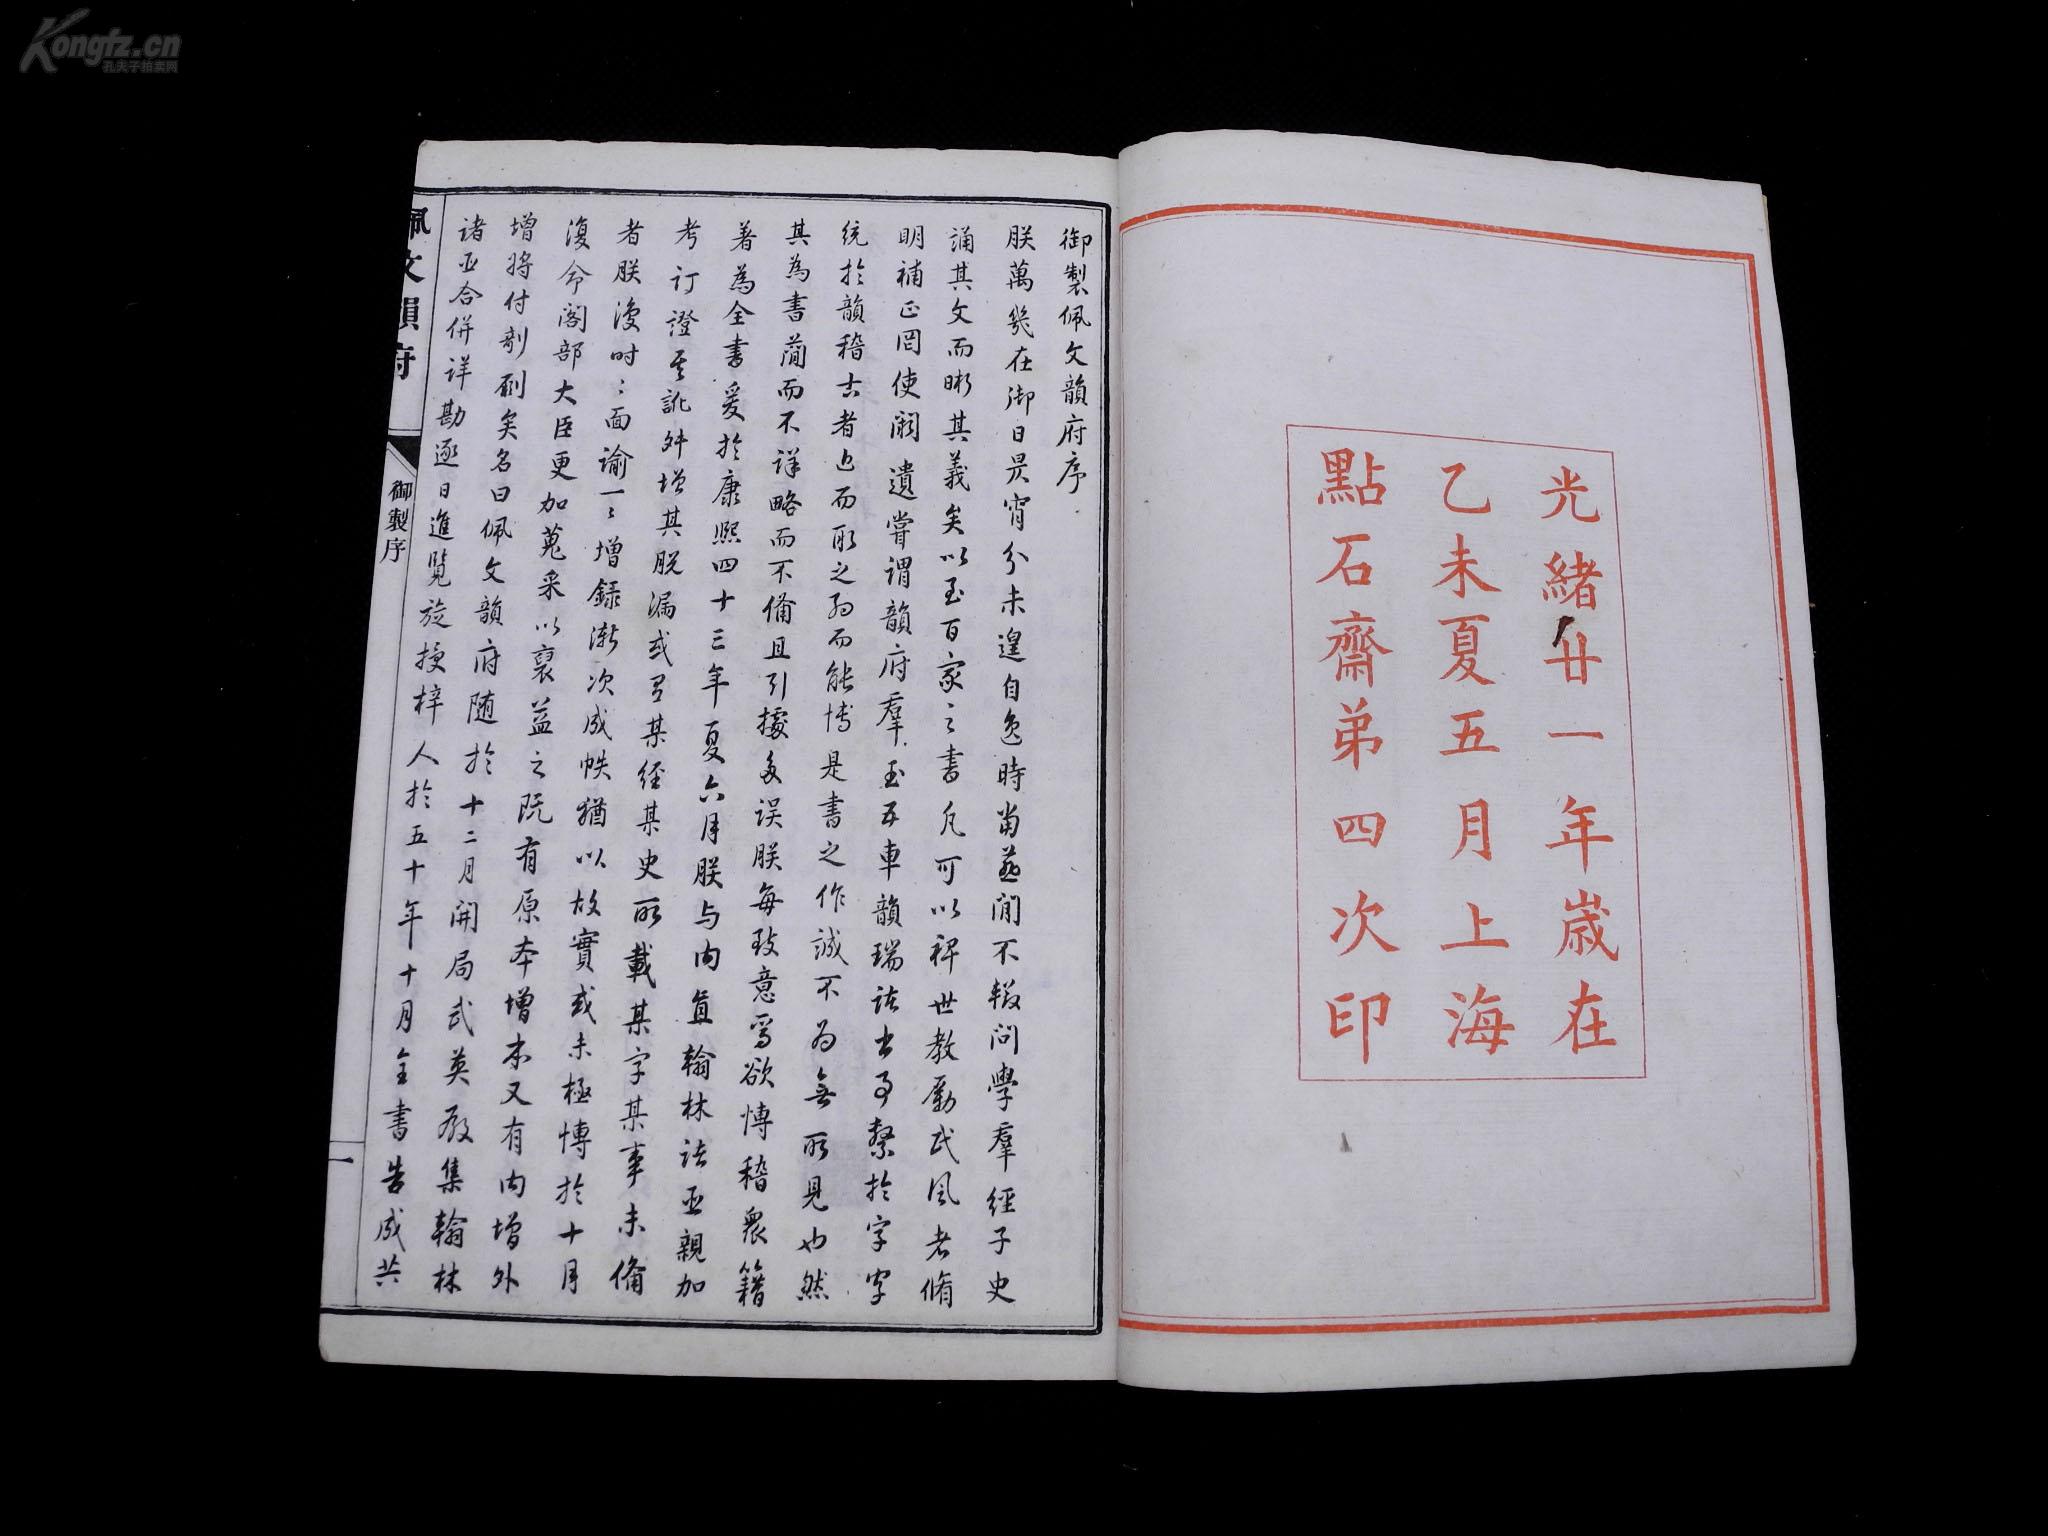 Kongfz.cn
孔夫子拍卖网
光緒廿一年歲在
乙未夏五月上海
點石齋弟四次印
御製佩文韻府序
朕萬幾在御日昃宵分未遑自逸時當燕閒不輟問學羣經子史
誦其文而晰其義矣以至百家之書凡可以裨世教勵民風者脩
明補正罔使闕遺嘗謂韻府羣玉五車韻瑞諸書事繫於字字
統於韻稽古者近而取之約而能博是書之作誠不為無所見也然
其為書簡而不詳略而不備且引據多誤朕每致意焉欲博稽衆籍
著為全書爰於康熙四十三年夏六月朕与內直翰林諸臣親加
考訂證其訛舛增其脫漏或有某經某史所載某字某事未備
者朕復時〻面諭一〻增錄漸次成帙猶以故實或未極博於十月
復命閣部大臣更加蒐采以裒益之既有原本增本又有內增外
增將付剞劂矣名曰佩文韻府随於十二月開局武英殿集翰林
諸臣合併詳勘逐日進覽旋授梓人於五十年十月全書告成共
佩文韻府
御製序
一